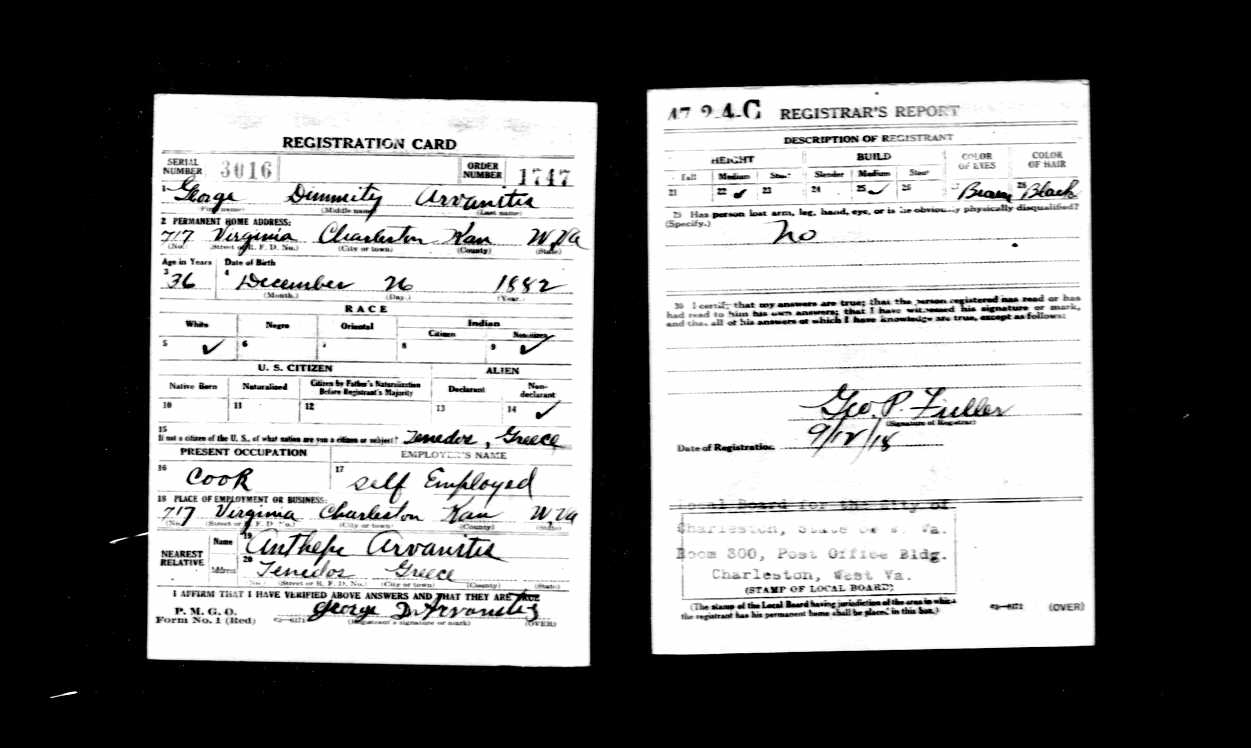 REGISTRATION CARD
SERIAL NUMBER 3016 ORDER NUMBER 1747
1 George Dimmity Arvanitis
(First name) (Middle name) (Last name)
2 PERMANENT HOME ADDRESS:
717 Virginia Charleston Kan W Va
(No.) (Street or R. F. D. No.) (City or town) (County) (State)
Age in Years Date of Birth
3 36 4 December 26 1882
(Month.) (Day.) (Year.)
RACE
White Negro Oriental Indian
Citizen Noncitizen
5 ✓ 6 7 8 9 ✓
U. S. CITIZEN ALIEN
Native Born Naturalized Citizen by Father's Naturalization Before Registrant's Majority Declarant Non-declarant
10 11 12 13 14 ✓
15
If not a citizen of the U. S., of what nation are you a citizen or subject? Tenedos, Greece
PRESENT OCCUPATION EMPLOYER'S NAME
16 Cook 17 self Employed
18 PLACE OF EMPLOYMENT OR BUSINESS:
717 Virginia Charleston Kan W, Va
(No.) (Street or R. F. D. No.) (City or town) (County) (State)
NEAREST RELATIVE Name 19 Arvanitis
Address 20 Tenedos Greece
(No.) (Street or R. F. D. No.) (City or town) (County) (State)
I AFFIRM THAT I HAVE VERIFIED ABOVE ANSWERS AND THAT THEY ARE TRUE
P. M. G. O.
Form No. 1 (Red) George D. Arvanitis
(Registrant's signature or mark) (OVER)
REGISTRAR'S REPORT
DESCRIPTION OF REGISTRANT
HEIGHT BUILD COLOR OF EYES COLOR OF HAIR
Tall Medium Short Slender Medium Stout
21 22 ✓ 23 24 25 ✓ 26 27 Brown 28 Black
29 Has person lost arm, leg, hand, eye, or is he obviously physically disqualified?
(Specify.) no
30 I certify that my answers are true; that the person registered has read or has
had read to him his own answers; that I have witnessed his signature or mark,
and that all of his answers of which I have knowledge are true, except as follows:
Geo. P. Fuller
(Signature of Registrar)
Date of Registration 9/12/18
Local Board for the City of
Charleston, State of W. Va.
Room 300, Post Office Bldg.
Charleston, West Va.
(STAMP OF LOCAL BOARD)
(The stamp of the Local Board having jurisdiction of the area in which
the registrant has his permanent home shall be placed in this box.) (OVER)